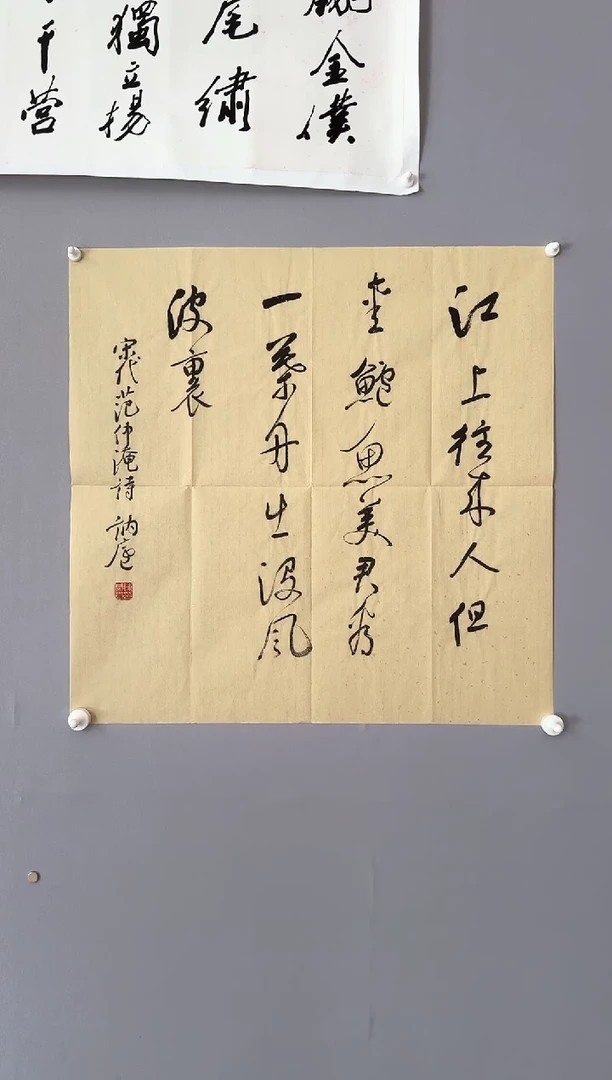 金僕
尾繡
獨立揚
千營
江上往来人但
愛鱸魚美君看
一葉舟出没風
波裏
宋代范仲淹詩